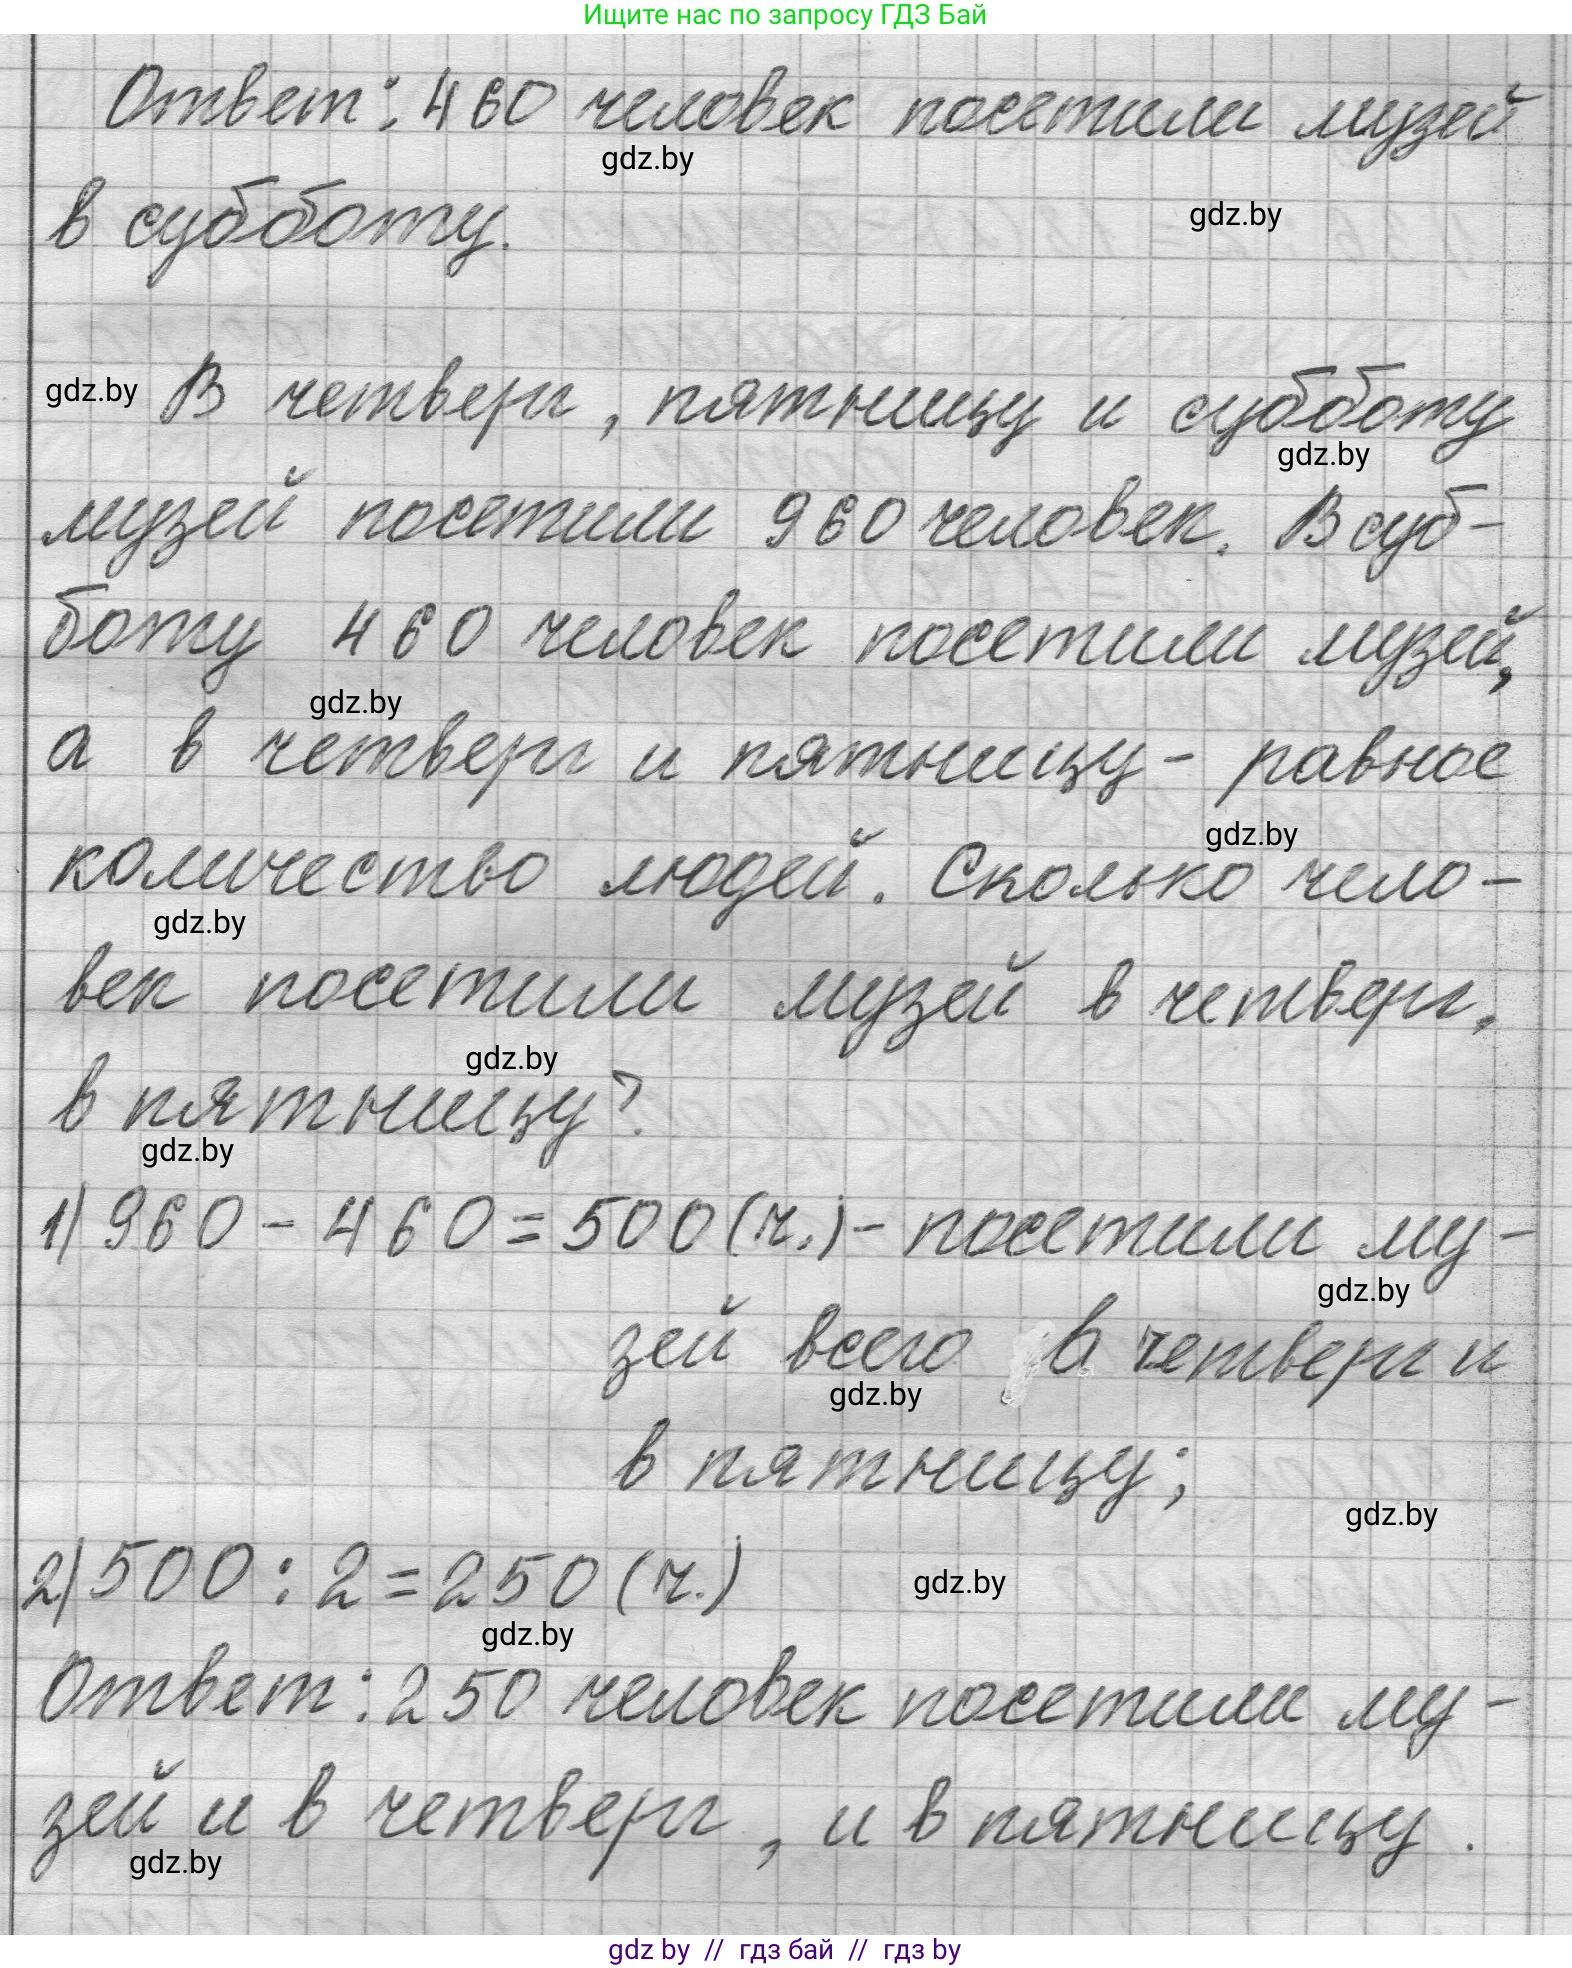 Ищите нас по запросу ГДЗ Бай
Ответ: 460 человек посетили музей
gdz.by
в субботу.
gdz.by
gdz.by
В четверг, пятницу и субботу
gdz.by
музей посетили 960 человек. В суб-
боту 460 человек посетили музей,
gdz.by
а в четверг и пятницу - равное
gdz.by
количество людей. Сколько чело-
gdz.by
век посетили музей в четверг,
gdz.by
в пятницу?
gdz.by
1) 960 - 460 = 500 (ч.) - посетили му-
gdz.by
зей всего в четверг и
gdz.by
в пятницу;
gdz.by
2) 500 : 2 = 250 (ч.)
gdz.by
gdz.by
Ответ: 250 человек посетили му-
зей и в четверг, и в пятницу.
gdz.by
gdz by // гдз бай // гдз by